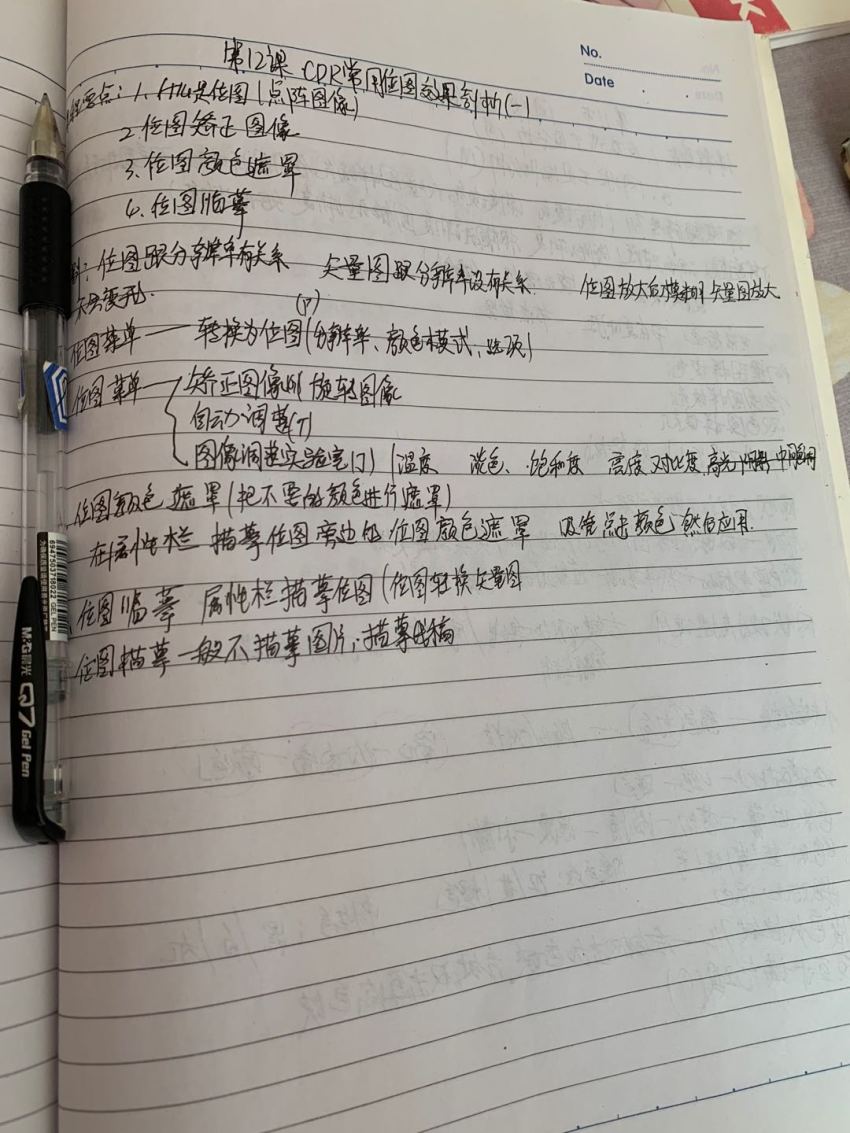 No.
Date
第12课 CDR常用位图效果剖析(一)
要点:1、什么是位图(点阵图像)
2.位图矫正图像
3.位图颜色遮罩
4.位图临摹
位图跟分辨率有关系 矢量图跟分辨率没有关系. 位图放大后模糊 矢量图放大
不会变形.
(P)
位图菜单——转换为位图(分辨率、颜色模式、选项)
位图菜单—矫正图像 旋转图像
自动调整(T)
图像调整实验室(J) (温度 淡色、饱和度 亮度 对比度,高光 阴影 中间调
位图颜色遮罩(把不要的颜色进行遮罩)
在属性栏 描摹位图旁边的位图颜色遮罩 吸管点击颜色 然后应用.
位图临摹 属性栏描摹位图(位图转换矢量图
位图描摹一般不描摹图片,描摹线稿
6947503798022 GEL PEN
M&G晨光
Q7
Gel Pen